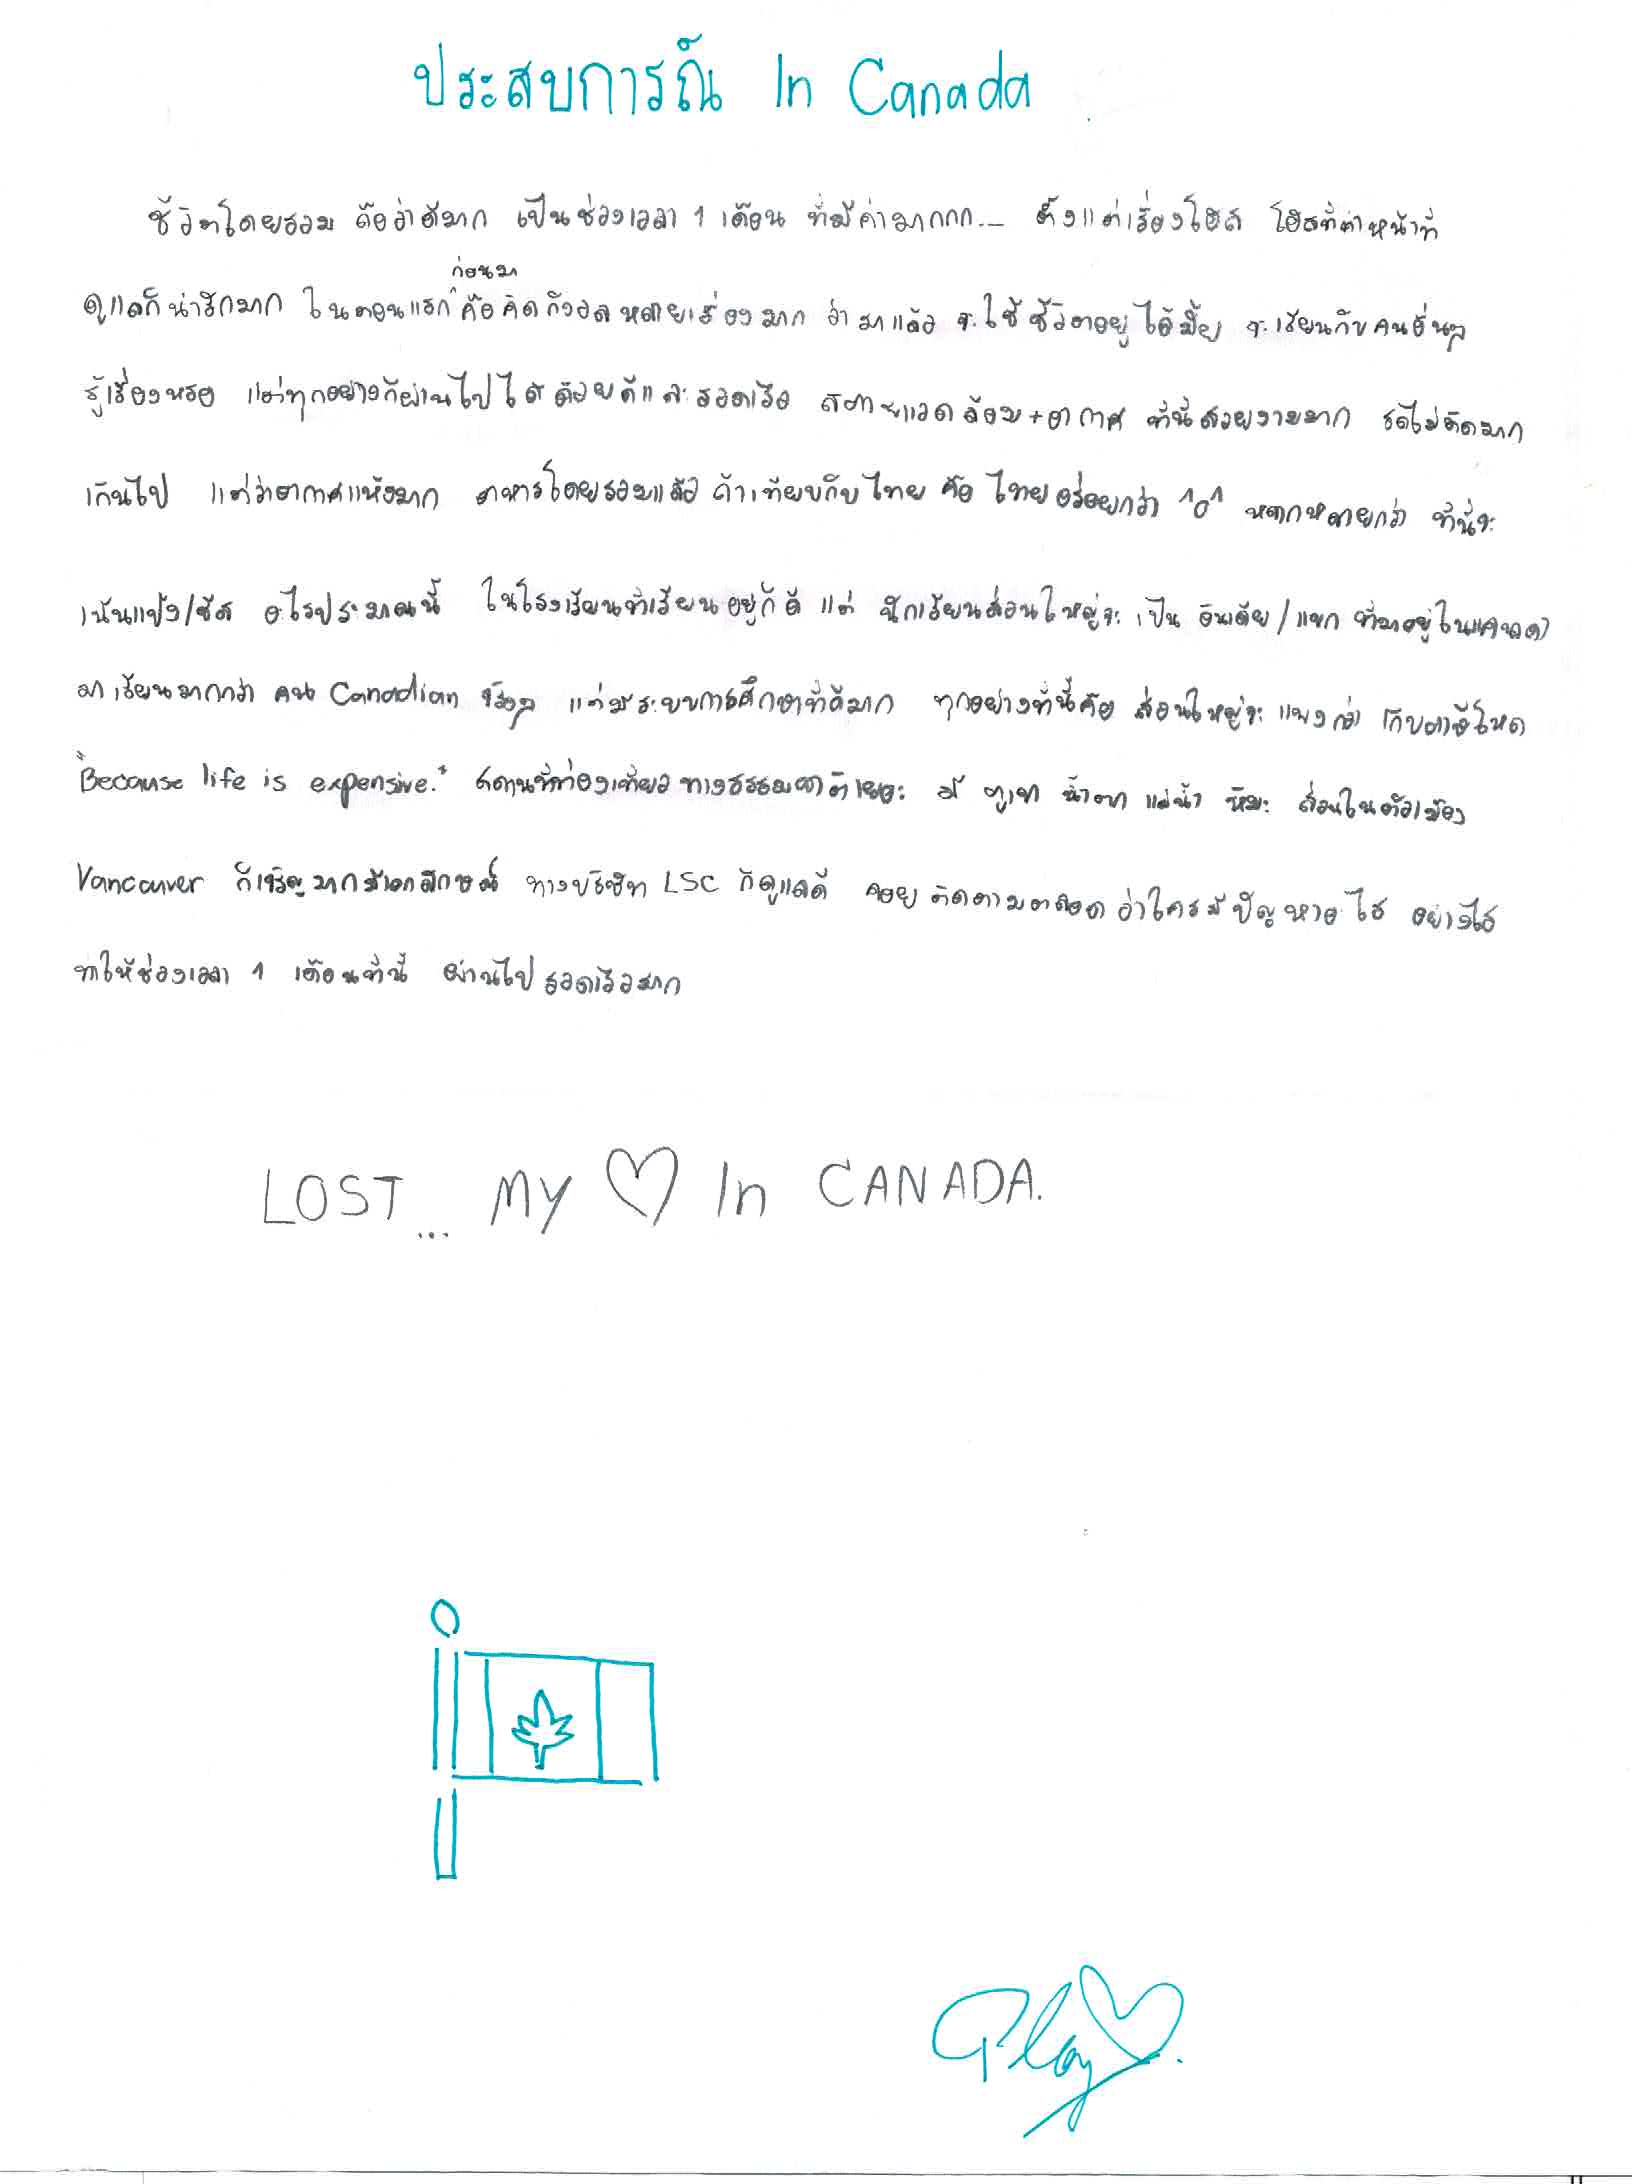 ประสบการณ์ In Canada
ชีวิตโดยรวม ถือว่าดีมาก เป็นช่วงเวลา 1 เดือน ที่มีค่ามากกก... ตั้งแต่เรื่องโฮส โฮสที่ทำหน้าที่
ก่อนมา
ดูแลก็น่ารักมาก ในตอนแรก คือคิดกังวลหลายเรื่องมาก ว่ามาแล้ว จะใช้ชีวิตอยู่ได้มั้ย จะเรียนกับคนอื่นๆ
รู้เรื่องหรอ แต่ทุกอย่างก็ผ่านไปได้ด้วยดีและรวดเร็ว สภาพแวดล้อม+อากาศ ที่นี่สวยงามมาก รถไม่ติดมาก
เกินไป แต่ว่าอากาศแห้งมาก อาหารโดยรวมแล้ว ถ้าเทียบกับไทย คือ ไทยอร่อยกว่า ^o^ หลากหลายกว่า ที่นี่จะ
เน้นแป้ง/ชีส อะไรประมาณนี้ ในโรงเรียนที่เรียนอยู่ก็ดี แต่ นักเรียนส่วนใหญ่จะ เป็น อินเดีย/แขก ที่มาอยู่ในแคนาดา
มาเรียนมากกว่า คน Canadian จริงๆ แต่มีระบบการศึกษาที่ดีมาก ทุกอย่างที่นี่คือ ส่วนใหญ่จะ แพงกว่า เก็บภาษีโหด
"Because life is expensive." สถานที่ท่องเที่ยวทางธรรมชาติเยอะ มี ภูเขา น้ำตก แม่น้ำ หิมะ ส่วนในตัวเมือง
Vancouver ก็เจริญมากมีเอกลักษณ์ ทางบริษัท LSC ก็ดูแลดี คอยติดตามตลอด ว่าใครมีปัญหาอะไร อย่างไร
ทำให้ช่วงเวลา 1 เดือนที่นี่ ผ่านไปรวดเร็วมาก
LOST... MY ♡ In CANADA.
Ploy♡.